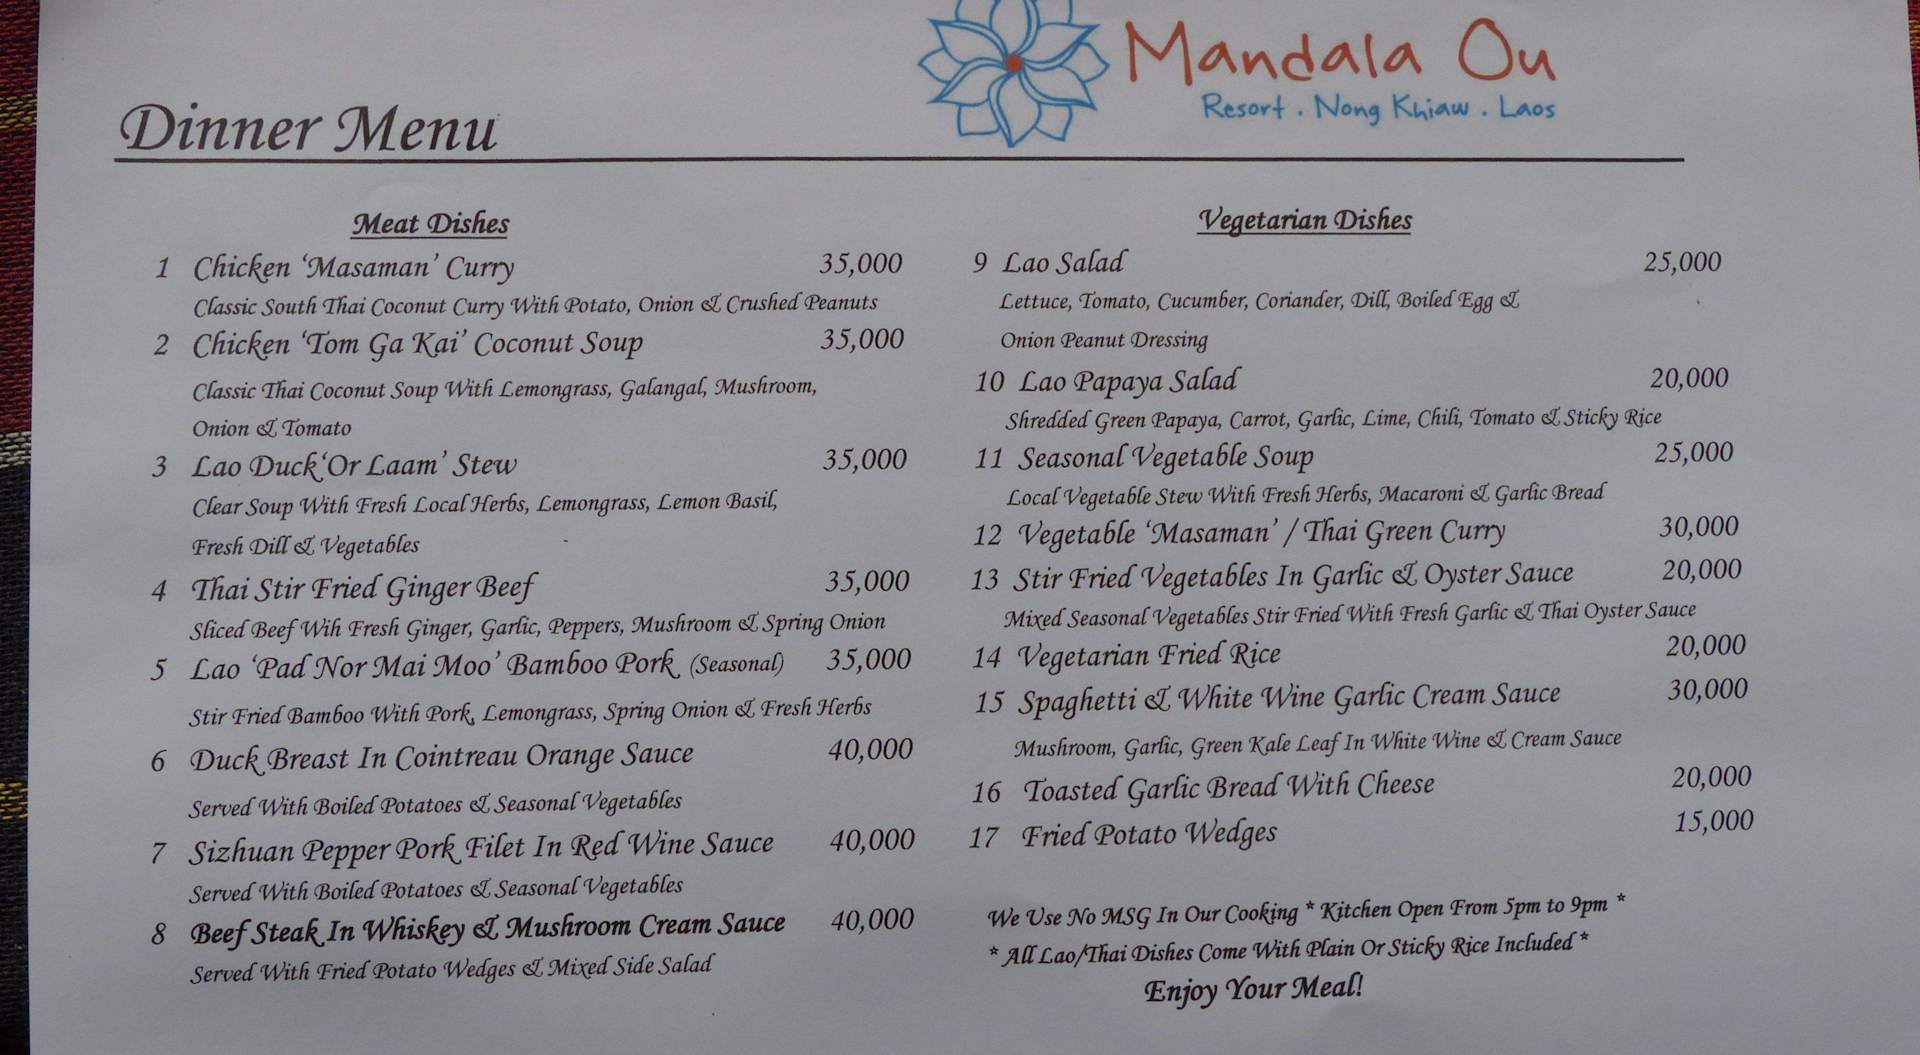 Mandala Ou
Resort . Nong Khiaw . Laos
Dinner Menu
Meat Dishes
1 Chicken ‘Masaman’ Curry 35,000
Classic South Thai Coconut Curry With Potato, Onion & Crushed Peanuts
2 Chicken ‘Tom Ga Kai’ Coconut Soup 35,000
Classic Thai Coconut Soup With Lemongrass, Galangal, Mushroom,
Onion & Tomato
3 Lao Duck ‘Or Laam’ Stew 35,000
Clear Soup With Fresh Local Herbs, Lemongrass, Lemon Basil,
Fresh Dill & Vegetables
4 Thai Stir Fried Ginger Beef 35,000
Sliced Beef Wih Fresh Ginger, Garlic, Peppers, Mushroom & Spring Onion
5 Lao ‘Pad Nor Mai Moo’ Bamboo Pork (Seasonal) 35,000
Stir Fried Bamboo With Pork, Lemongrass, Spring Onion & Fresh Herbs
6 Duck Breast In Cointreau Orange Sauce 40,000
Served With Boiled Potatoes & Seasonal Vegetables
7 Sizhuan Pepper Pork Filet In Red Wine Sauce 40,000
Served With Boiled Potatoes & Seasonal Vegetables
8 Beef Steak In Whiskey & Mushroom Cream Sauce 40,000
Served With Fried Potato Wedges & Mixed Side Salad
Vegetarian Dishes
9 Lao Salad 25,000
Lettuce, Tomato, Cucumber, Coriander, Dill, Boiled Egg &
Onion Peanut Dressing
10 Lao Papaya Salad 20,000
Shredded Green Papaya, Carrot, Garlic, Lime, Chili, Tomato & Sticky Rice
11 Seasonal Vegetable Soup 25,000
Local Vegetable Stew With Fresh Herbs, Macaroni & Garlic Bread
12 Vegetable ‘Masaman’ / Thai Green Curry 30,000
13 Stir Fried Vegetables In Garlic & Oyster Sauce 20,000
Mixed Seasonal Vegetables Stir Fried With Fresh Garlic & Thai Oyster Sauce
14 Vegetarian Fried Rice 20,000
15 Spaghetti & White Wine Garlic Cream Sauce 30,000
Mushroom, Garlic, Green Kale Leaf In White Wine & Cream Sauce
16 Toasted Garlic Bread With Cheese 20,000
17 Fried Potato Wedges 15,000
We Use No MSG In Our Cooking * Kitchen Open From 5pm to 9pm *
* All Lao/Thai Dishes Come With Plain Or Sticky Rice Included *
Enjoy Your Meal!